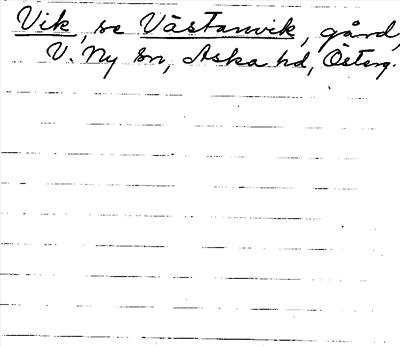 Vik, se Västanvik, gård,
V. Ny sn, Aska hd, Österg.